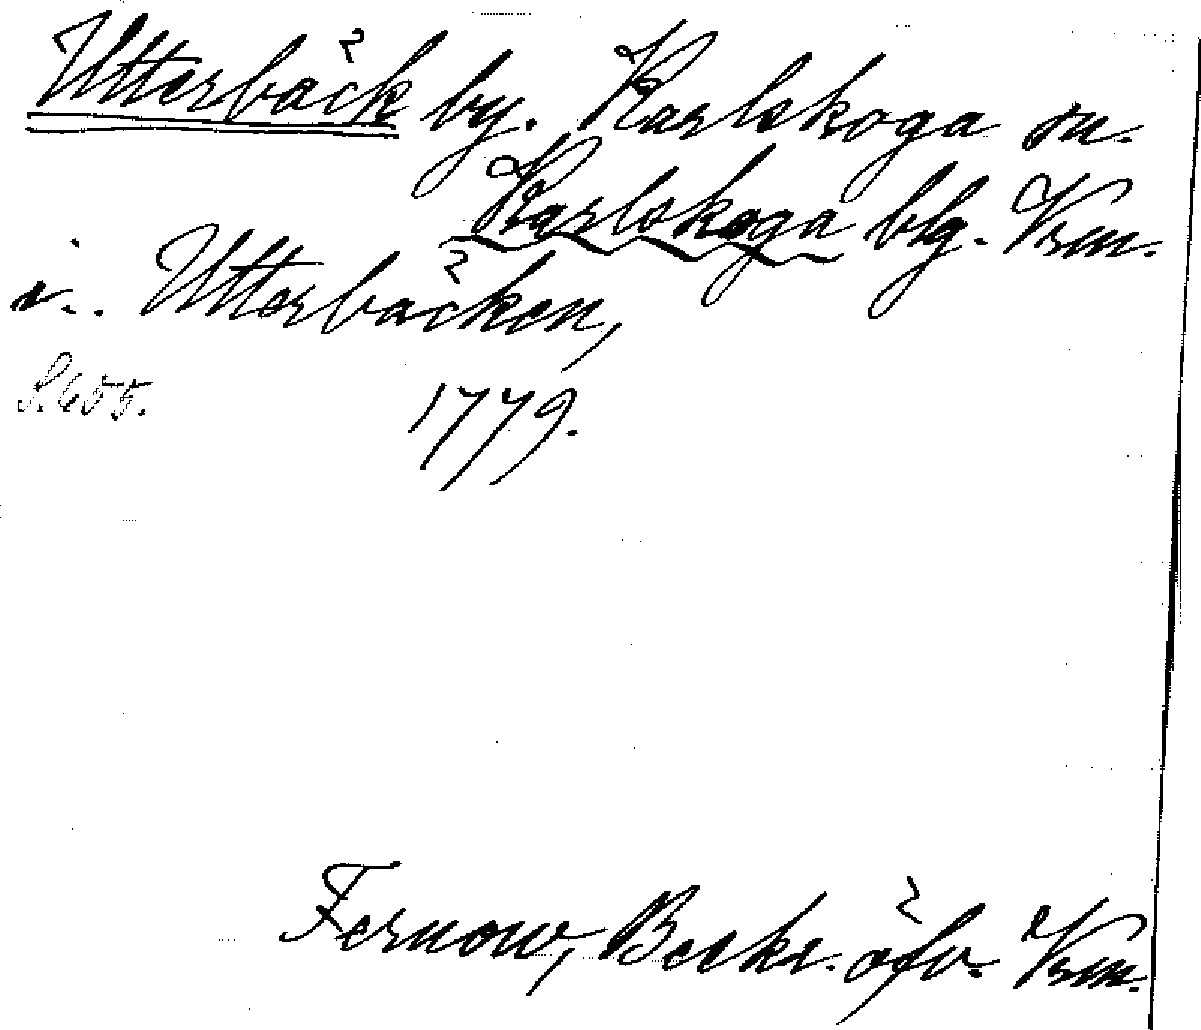 Utterbäck by. Karlskoga sn.
Karlskoga blg. Vrm.
i.. Utterbäcken,
S. 655. 1779.
Fernow, Beskr. öfv. Vrm.